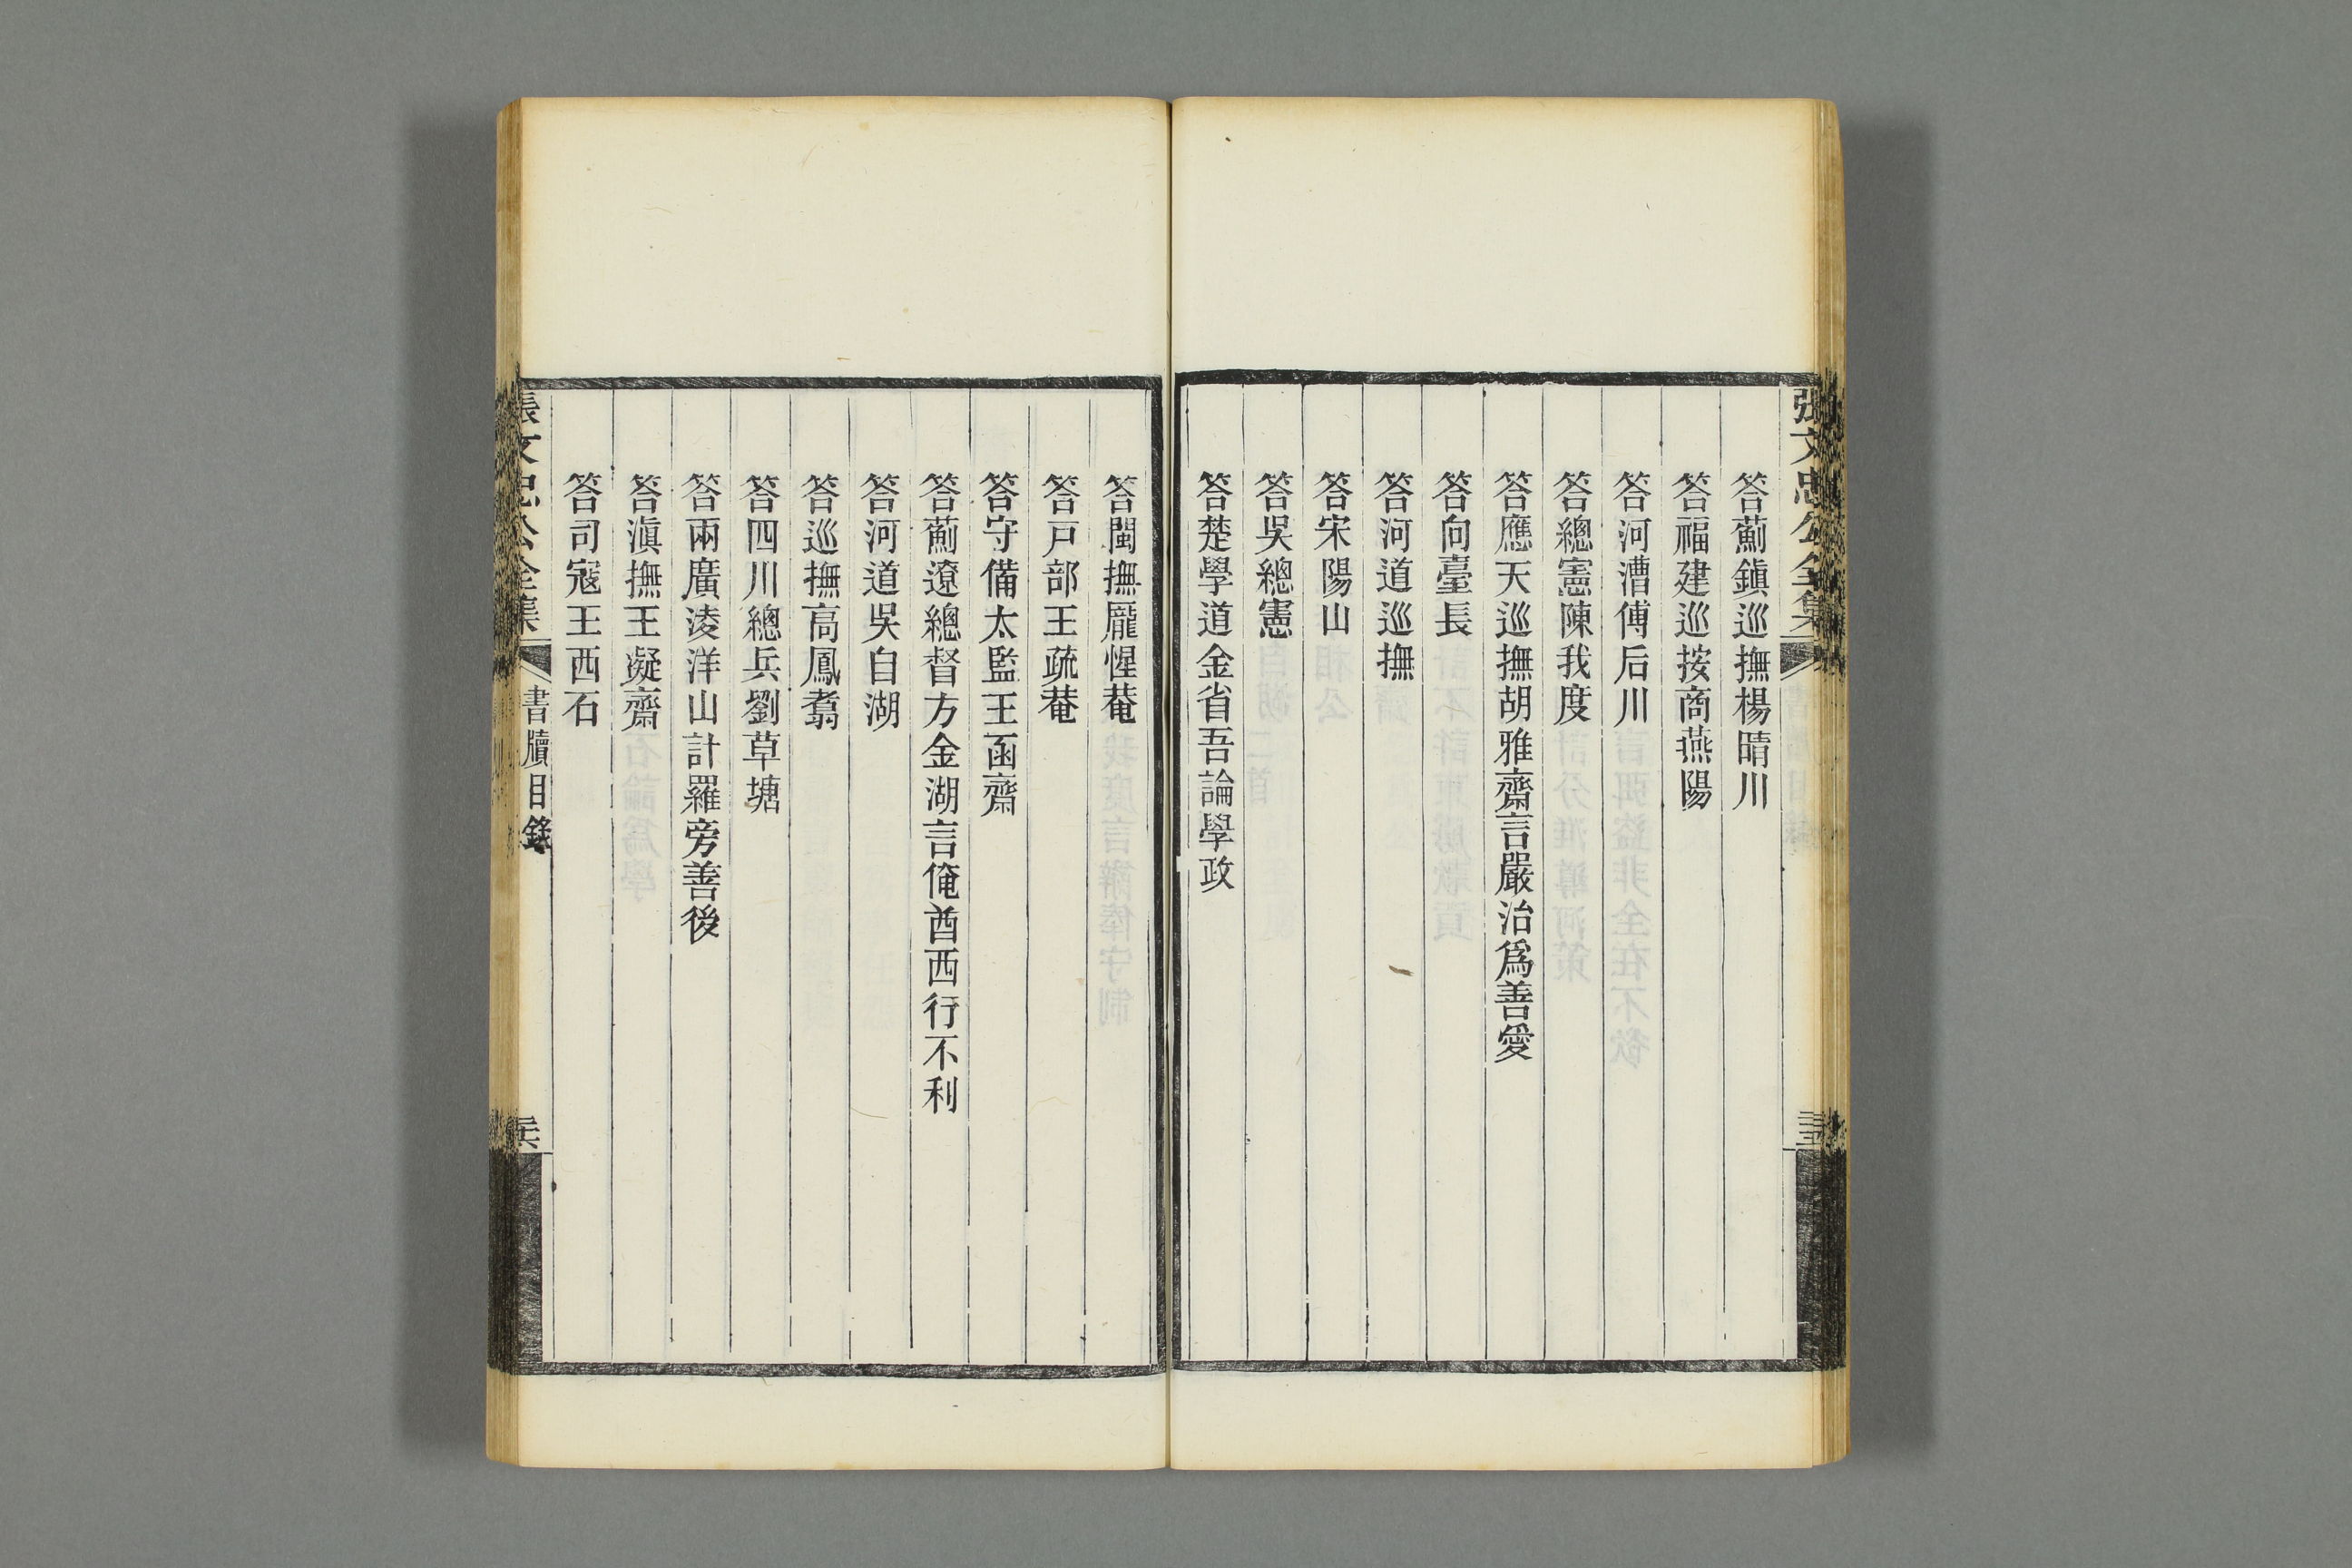 張文忠公全集
答薊鎭巡撫楊晴川
答福建巡按商燕陽
答河漕傅后川
答總憲陳我度
答應天巡撫胡雅齋言嚴治爲善愛
答向臺長
答河道巡撫
答宋陽山
答吳總憲
答楚學道金省吾論學政
答閩撫龐惺菴
答戸部王疏菴
答守備太監王函齋
答薊遼總督方金湖言俺酋西行不利
答河道吳自湖
答巡撫高鳳翥
答四川總兵劉草塘
答兩廣凌洋山計羅旁善後
答滇撫王凝齋
答司寇王西石
張文忠公全集
書牘目錄